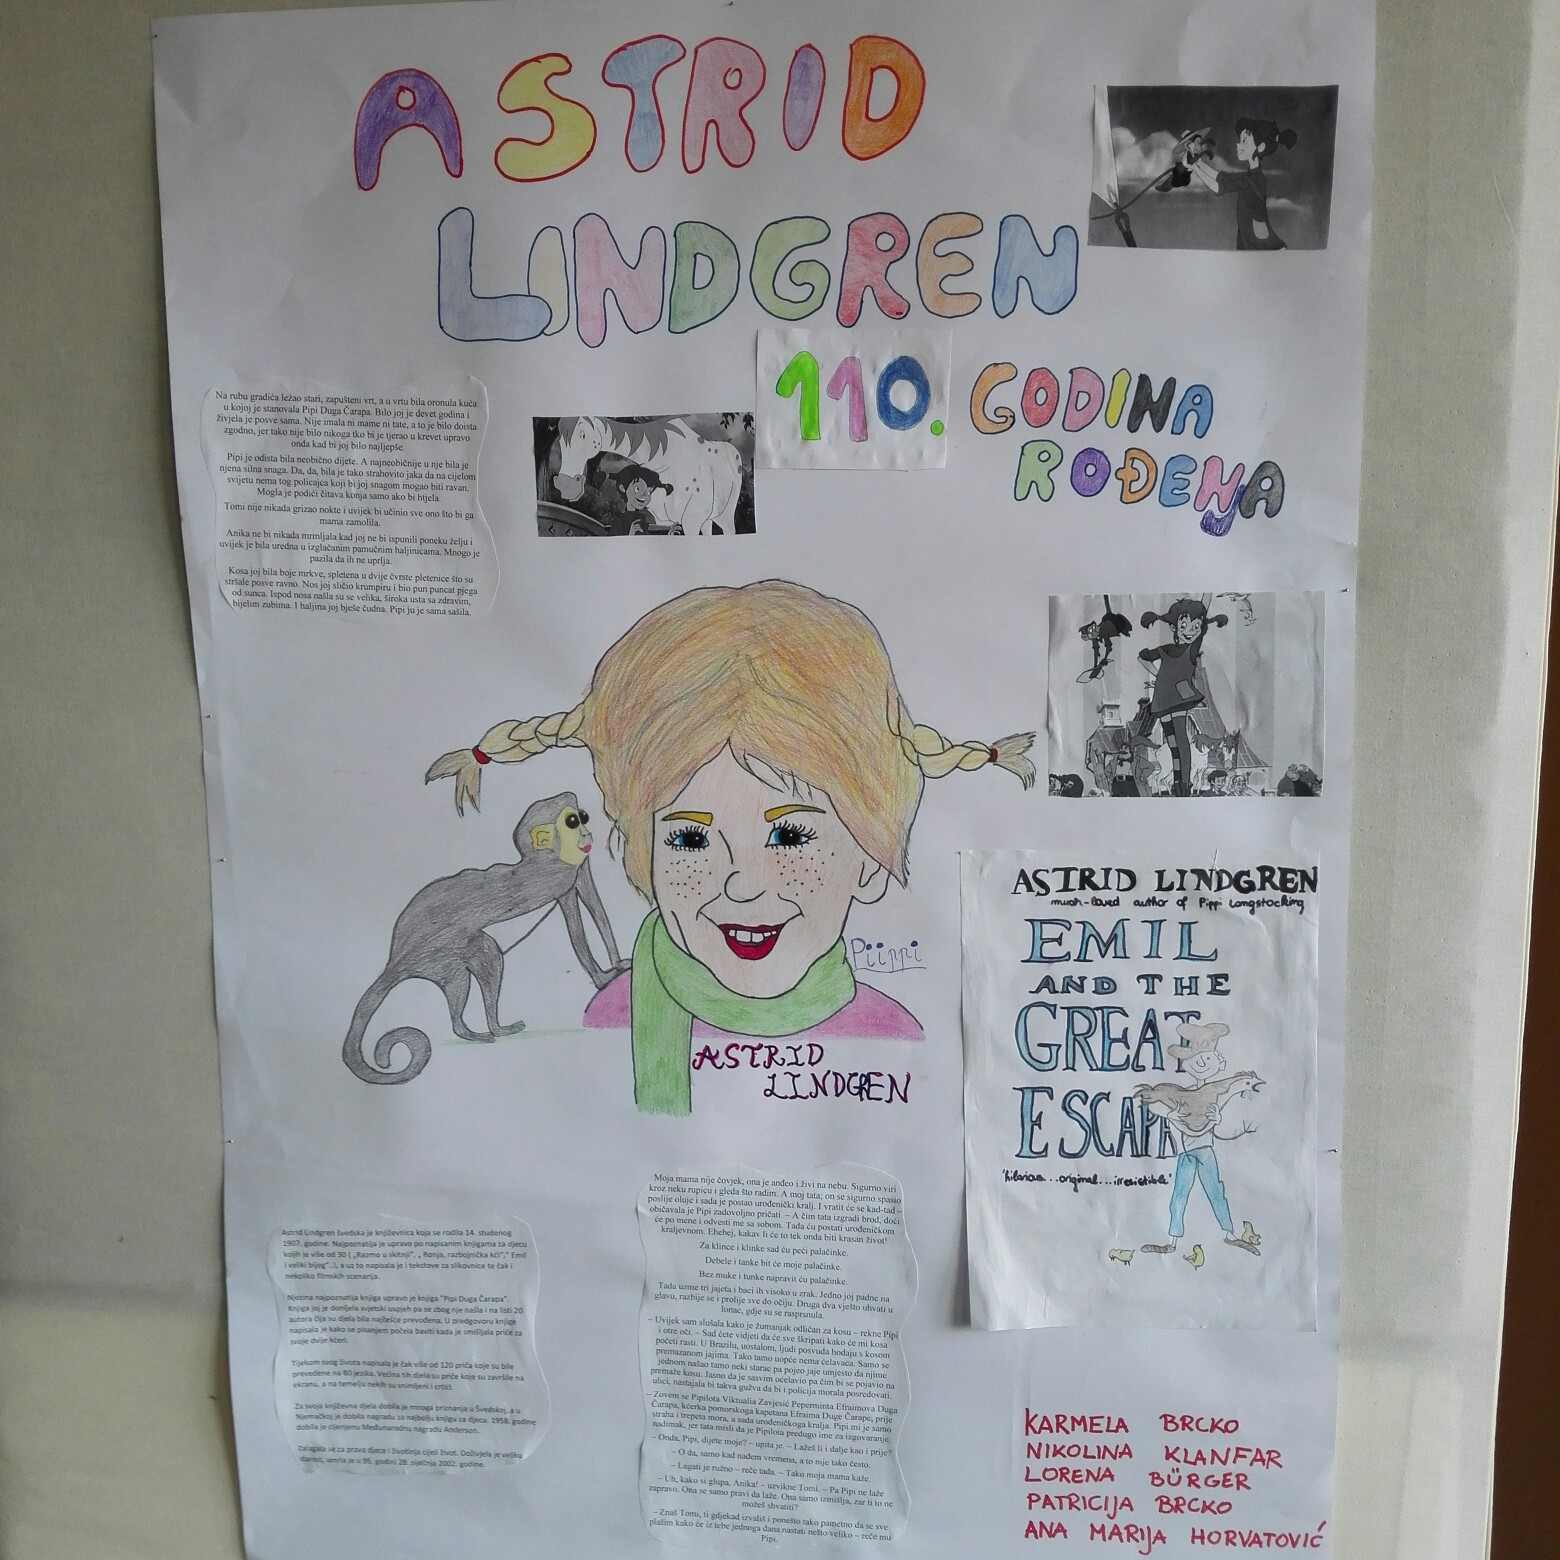 ASTRID
LINDGREN
110. GODINA
ROĐENJA
Na rubu gradića ležao stari, zapušteni vrt, a u vrtu bila oronula kuća
u kojoj je stanovala Pipi Duga Čarapa. Bilo joj je devet godina i
živjela je posve sama. Nije imala ni mame ni tate, a to je bilo doista
zgodno, jer tako nije bilo nikoga tko bi je tjerao u krevet upravo
onda kad bi joj bilo najljepše.
Pipi je odista bila neobično dijete. A najneobičnije u nje bila je
njena silna snaga. Da, da, bila je tako strahovito jaka da na cijelom
svijetu nema tog policajca koji bi joj snagom mogao biti ravan.
Mogla je podići čitava konja samo ako bi htjela.
Tomi nije nikada grizao nokte i uvijek bi učinio sve ono što bi ga
mama zamolila.
Anika ne bi nikada mrmljala kad joj ne bi ispunili poneku želju i
uvijek je bila uredna u izglačanim pamučnim haljinicama. Mnogo je
pazila da ih ne uprlja.
Kosa joj bila boje mrkve, spletena u dvije čvrste pletenice što su
stršale posve ravno. Nos joj sličio krumpiru i bio pun puncat pjega
od sunca. Ispod nosa našla su se velika, široka usta sa zdravim,
bijelim zubima. I haljina joj bješe čudna. Pipi ju je sama sašila.
Piippi
ASTRID
LINDGREN
ASTRID LINDGREN
much-loved author of Pippi Longstocking
EMIL
AND THE
GREAT
ESCAPA
'hilarious...original...irresistible'
Astrid Lindgren švedska je književnica koja se rodila 14. studenog
1907. godine. Najpoznatija je upravo po napisanim knjigama za djecu
kojih je više od 30 ( „Razmo u skitnji", „ Ronja, razbojnička kći"," Emil
i veliki bijeg"..), a uz to napisala je i tekstove za slikovnice te čak i
nekoliko filmskih scenarija.
Njezina najpoznatija knjiga upravo je knjiga "Pipi Duga Čarapa".
Knjiga joj je donijela svjetski uspjeh pa se zbog nje našla i na listi 20
autora čija su djela bila najčešće prevođena. U predgovoru knjige
napisala je kako se pisanjem počela baviti kada je smišljala priče za
svoje dvije kćeri.
Tijekom svog života napisala je čak više od 120 priča koje su bile
prevođene na 80 jezika. Većina tih djela su priče koje su završile na
ekranu, a na temelju nekih su snimljeni i crtići.
Za svoja književna djela dobila je mnoga priznanja u Švedskoj, a u
Njemačkoj je dobila nagradu za najbolju knjigu za djecu. 1958. godine
dobila je cijenjenu Međunarodnu nagradu Anderson.
Zalagala se za prava djece i životinja cijeli život. Doživjela je veliku
starost, umrla je u 95. godini 28. siječnja 2002. godine.
Moja mama nije čovjek, ona je anđeo i živi na nebu. Sigurno viri
kroz neku rupicu i gleda što radim. A moj tata; on se sigurno spasio
poslije oluje i sada je postao urođenički kralj. I vratit će se kad-tad –
običavala je Pipi zadovoljno pričati. – A čim tata izgradi brod, doći
će po mene i odvesti me sa sobom. Tada ću postati urođeničkom
kraljevnom. Ehehej, kakav li će to tek onda biti krasan život!
Za klince i klinke sad ću peći palačinke.
Debele i tanke bit će moje palačinke.
Bez muke i tunke napravit ću palačinke.
Tada uzme tri jajeta i baci ih visoko u zrak. Jedno joj padne na
glavu, razbije se i prolije sve do očiju. Druga dva vješto uhvati u
lonac, gdje su se rasprsnula.
– Uvijek sam slušala kako je žumanjak odličan za kosu – rekne Pipi
i otre oči. – Sad ćete vidjeti da će sve škripati kako će mi kosa
početi rasti. U Brazilu, uostalom, ljudi posvuda hodaju s kosom
premazanom jajima. Tako tamo uopće nema ćelavaca. Samo se
jednom našao tamo neki starac pa pojeo jaje umjesto da njime
premaže kosu. Jasno da je sasvim oćelavio pa čim bi se pojavio na
ulici, nastajala bi takva gužva da bi i policija morala posredovati.
– Zovem se Pipilota Viktualia Zavjesić Peperminta Efraimova Duga
Čarapa, kćerka pomorskoga kapetana Efraima Duge Čarape, prije
straha i trepeta mora, a sada urođeničkoga kralja. Pipi mi je samo
nadimak, jer tata misli da je Pipilota predugo ime za izgovaranje.
– Onda, Pipi, dijete moje? – upita je. – Lažeš li i dalje kao i prije?
– O da, samo kad nađem vremena, a to nije tako često.
– Lagati je ružno – reče tada. – Tako moja mama kaže.
– Uh, kako si glupa, Anika! – uzvikne Tomi. – Pa Pipi ne laže
zapravo. Ona se samo pravi da laže. Ona samo izmišlja, zar ti to ne
možeš shvatiti?
– Znaš Tomi, ti gdjekad izvališ i ponešto tako pametno da se sve
plašim kako će iz tebe jednoga dana nastati nešto veliko – reče mu
Pipi.
KARMELA BRCKO
NIKOLINA KLANFAR
LORENA BÜRGER
PATRICIJA BRCKO
ANA MARIJA HORVATOVIĆ